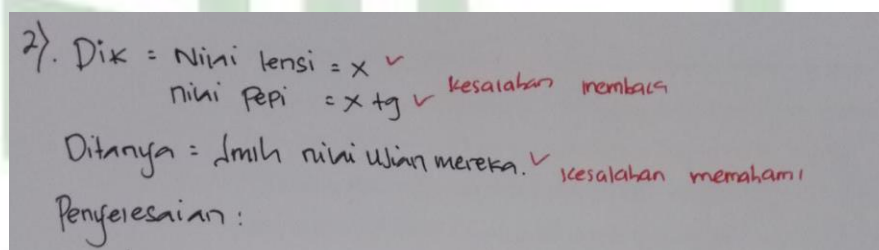 2). Dik = Nilai lensi = x ✓
nilai Pepi = x + g ✓ kesalahan membaca
Ditanya = Jmlh nilai ujian mereka. ✓ kesalahan memahami
Penyelesaian :